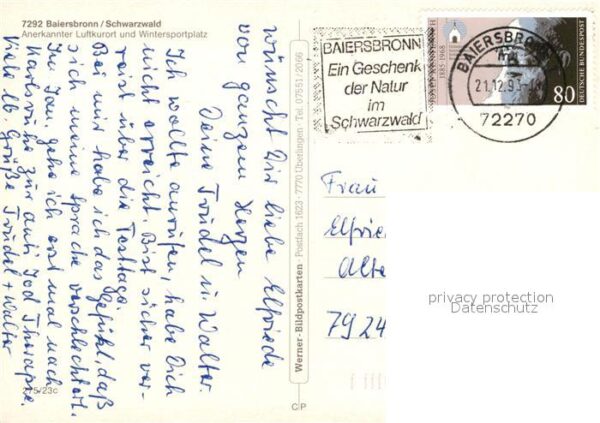 7292 Baiersbronn / Schwarzwald
Anerkannter Luftkurort und Wintersportplatz
wünscht Dir liebe Elfriede
von ganzem Herzen
Deine Trudel u. Walter.
Ich wollte anrufen, habe Dich
nicht erreicht. Bist sicher ver-
reist über die Festtage.
Bei mir habe ich das Gefühl, daß
sich meine Sprache verschlechtert.
Im Jan. gehe ich erst mal nach
Karlsruhe zur anti Jod Therapie.
Viele lb. Grüße Trudel + Walter
275/23c
Werner-Bildpostkarten · Postfach 1623 · 7770 Überlingen · Tel. 07551/2066
CP
BAIERSBRONN
Ein Geschenk
der Natur
im
Schwarzwald
BAIERSBRONN
21.12.93
72270
1885-1968
DEUTSCHE BUNDESPOST
80
Frau
Elfrie
Alte
7924
privacy protection
Datenschutz